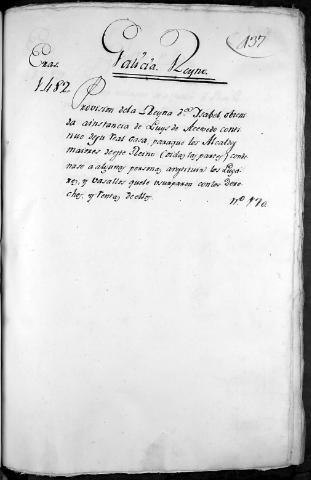 137
Galicia Reyno.
Eras.
1482
Provision dela Reyna d.ª Ysabel, obteni
da a instancia de Luys de Acevedo conti
nuo de su Real Casa, para que los Alcaldes
maiores de este Reino (oidas las partes) conde
nase a algunas personas, a restituir los Luga
res, y vasallos que le usurparon con los Dere
chos, y Rentas de ellos.
nº 170